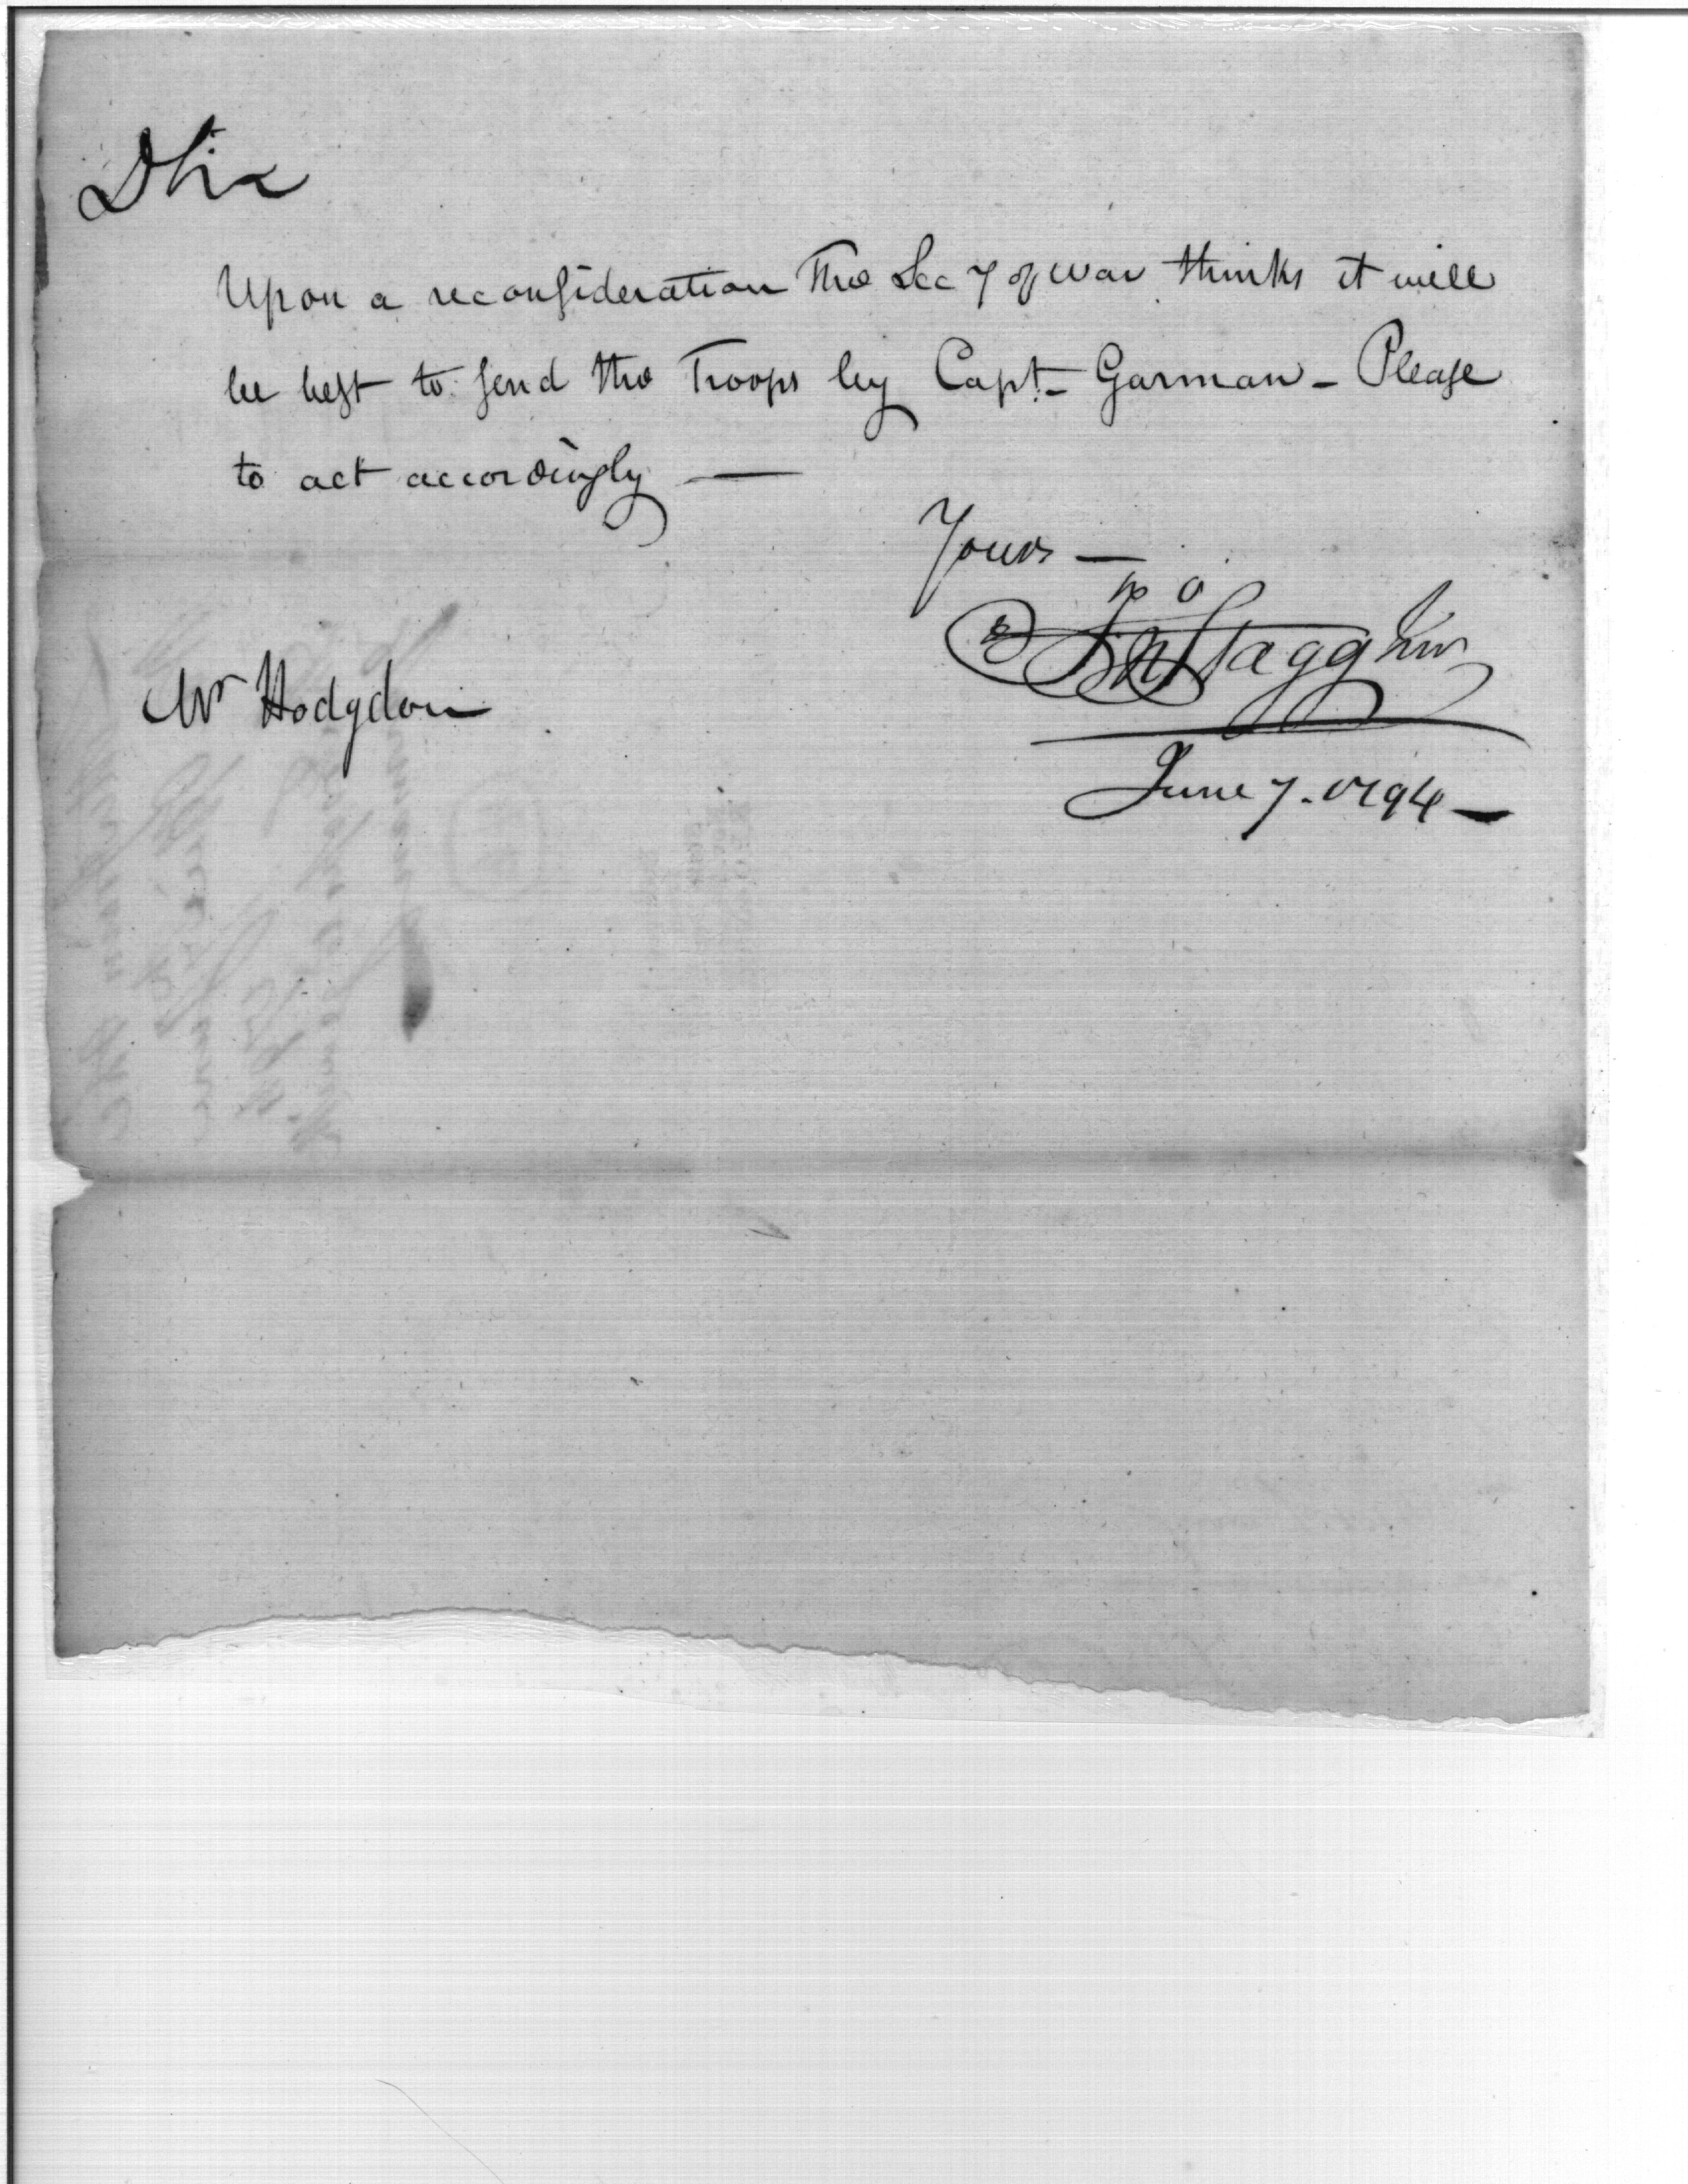 D Sir
Upon a reconsideration The Secy of War thinks it will
be best to send the Troops by Capt. Garman - Please
to act accordingly —
Yours —
Jno Stagg Junr
Mr Hodgdon
June 7. 1794 —